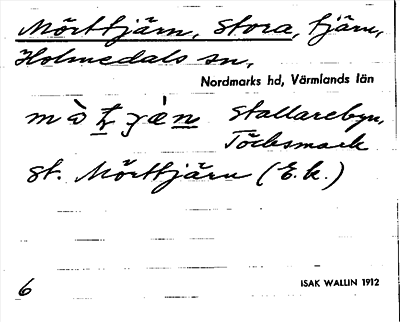 Mörttjärn, Stora, tjärn,
Holmedals sn,
Nordmarks hd, Värmlands län
Stallarebyn,
Töcksmark
St. Mörttjärn (E.k.)
6
ISAK WALLIN 1912